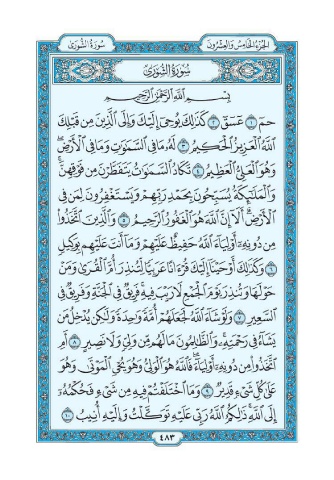 الجزء الخامس والعشرون
سورة الشورى
سورة الشورى
بسم الله الرحمن الرحيم
حم ١ عسق ٢ كذلك يوحي إليك وإلى الذين من قبلك
الله العزيز الحكيم ٣ له ما في السموات وما في الأرض
وهو العلي العظيم ٤ تكاد السموات يتفطرن من فوقهن
والملئكة يسبحون بحمد ربهم ويستغفرون لمن في
الأرض ألا إن الله هو الغفور الرحيم ٥ والذين اتخذوا
من دونه أولياء الله حفيظ عليهم وما أنت عليهم بوكيل
٦ وكذلك أوحينا إليك قرءانا عربيا لتنذر أم القرى ومن
حولها وتنذر يوم الجمع لا ريب فيه فريق في الجنة وفريق في
السعير ٧ ولو شاء الله لجعلهم أمة واحدة ولكن يدخل من
يشاء في رحمته والظالمون ما لهم من ولي ولا نصير ٨ أم
اتخذوا من دونه أولياء فالله هو الولي وهو يحي الموتى وهو
على كل شيء قدير ٩ وما اختلفتم فيه من شيء فحكمه
إلى الله ذلكم الله ربي عليه توكلت وإليه أنيب ١٠
٤٨٣